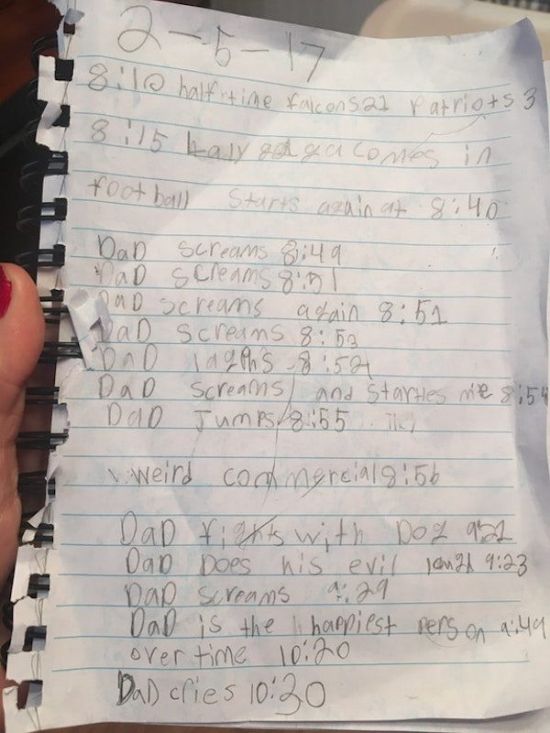 2-5-17
8:10 halftime falcons 21 Patriots 3
8:15 Lady gaga comes in
football starts again at 8:40
DaD screams 8:49
DaD screams 8:51
DaD screams again 8:51
DaD screams 8:53
DaD 8:54
DaD screams and startles me 8:54
DaD Jumps 8:55
weird commercial 8:56
DaD fights with Dog 9:21
DaD Does his evil 9:23
DaD screams 9:29
DaD is the happiest person 9:49
over time 10:20
DaD cries 10:30